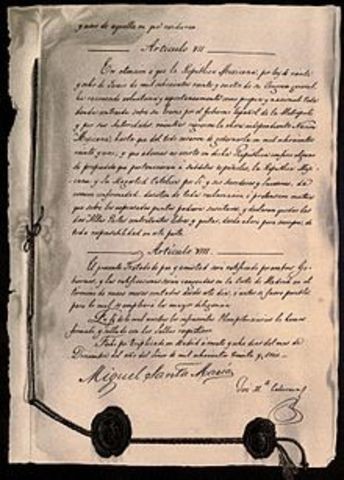 y uno de aquella en que residieren
Artículo VII
En atencion a que la República Mexicana, por ley de veinte
y ocho de Junio de mil ochocientos veinte y cuatro de su Congreso general,
ha reconocido voluntaria y espontaneamente como propia y nacional toda
deuda contraida sobre su Erario por el Gobierno español de la Metropoli
y por sus autoridades mientras rigieron la ahora independiente Nacion
Mexicana, hasta que del todo cesaron de gobernarla en mil ochocientos
veinte y uno; y que ademas no existe en dicha República confisco alguno
de propiedades que pertenecieran a súbditos españoles, la República Mexi-
cana y Su Magestad Católica por sí y sus herederos y sucesores, de
comun conformidad, desisten de toda reclamacion o pretension mutua
que sobre los expresados puntos pudiera suscitarse, y declaran quedar las
dos Altas Partes contratantes libres y quitas, desde ahora para siempre, de
toda responsabilidad en esta parte.
Artículo VIII
El presente Tratado de paz y amistad será ratificado por ambos Go-
biernos, y las ratificaciones serán cangeadas en la Corte de Madrid en el
término de nueve meses contados desde este dia, o antes si fuere posible
para lo cual se empleará la mayor diligencia.
En fe de lo cual nosotros los infrascritos Plenipotenciarios lo hemos
firmado y sellado con los sellos respectivos.
Fecho por triplicado en Madrid a veinte y ocho dias del mes de
Diciembre del año del Señor de mil ochocientos treinta y seis.
Miguel Santa María
José Mª Calatrava